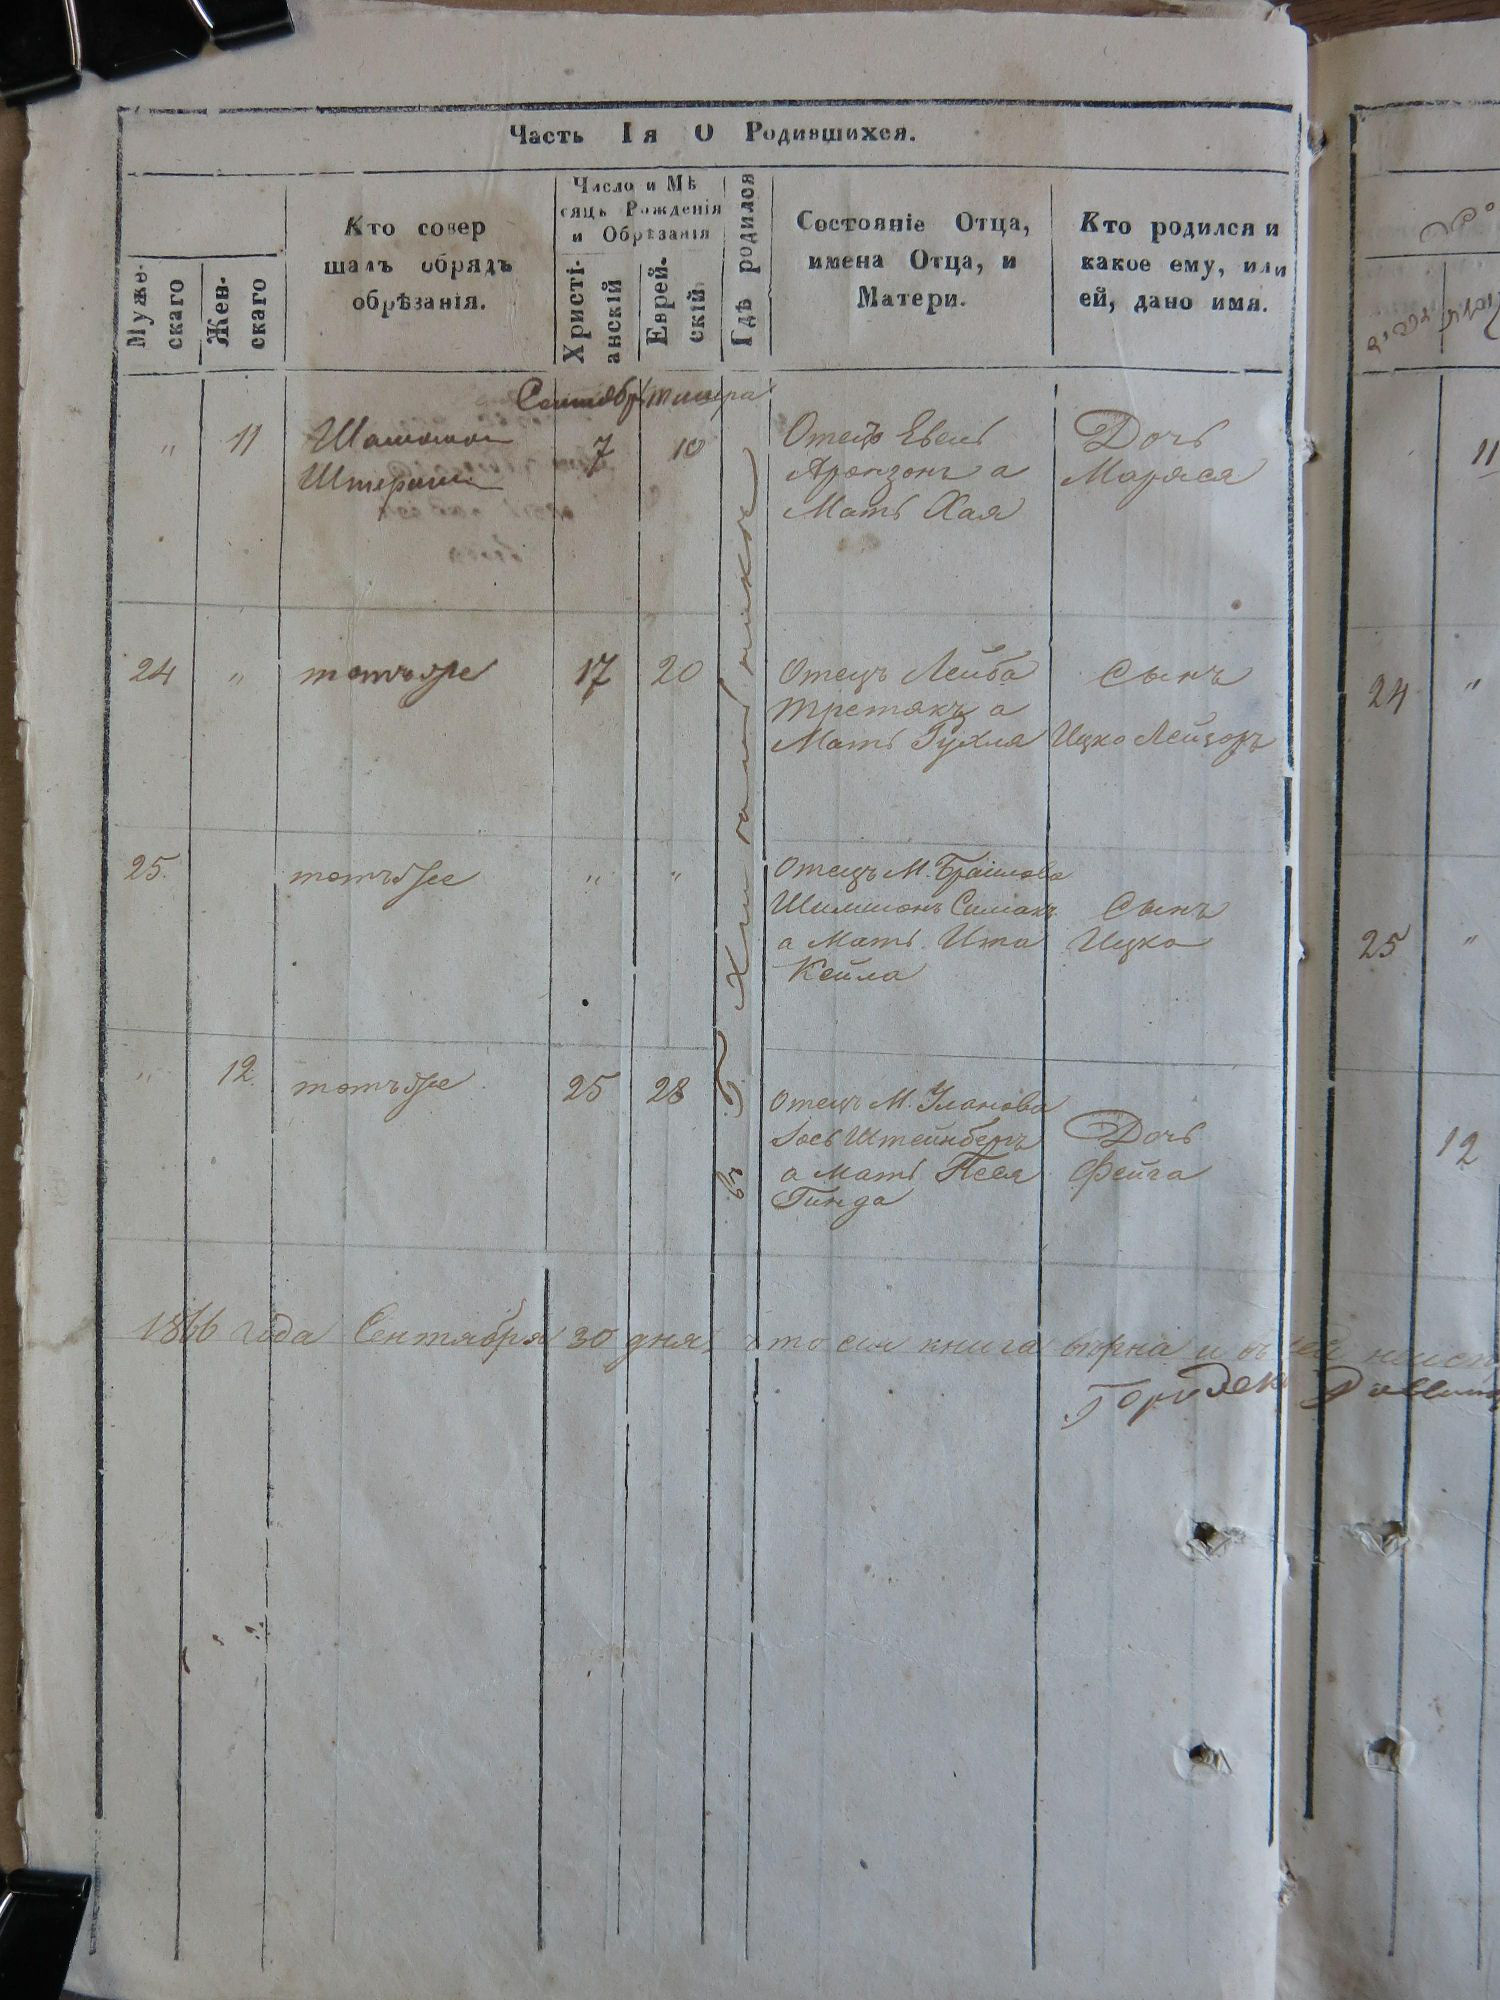 Часть Iя О Родившихся.
Муже-
скаго
Жен-
скаго
Кто совер
шалъ обрядъ
обрѣзанія.
Число и Мѣ
сяцъ Рожденія
и Обрѣзанія
Христі-
анскій
Еврей-
скій
Гдѣ родился
Состояніе Отца,
имена Отца, и
Матери.
Кто родился и
какое ему, или
ей, дано имя.
Сентябр тишра
" 11 7 10 Отецъ Евель Дочь
Аронзонъ а Маряся
Мать Хая
24 " тотъже 17 20 Отецъ Лейба Сынъ
Третякъ а
Мать Рухля Ицко Лейзоръ
25. тотъже " " Отецъ М. Браилова
Шимшонъ Симакъ Сынъ
а Мать Ита Ицко
Кейла
" 12 тотъже 25 28 Отецъ М. Уланова
Іось Штейнберъ Дочь
а Мать Песя Фейга
Гинда
въ
1866 года Сентября 30 дня, что сія книга вѣрна и въ
11
24 "
25 "
12